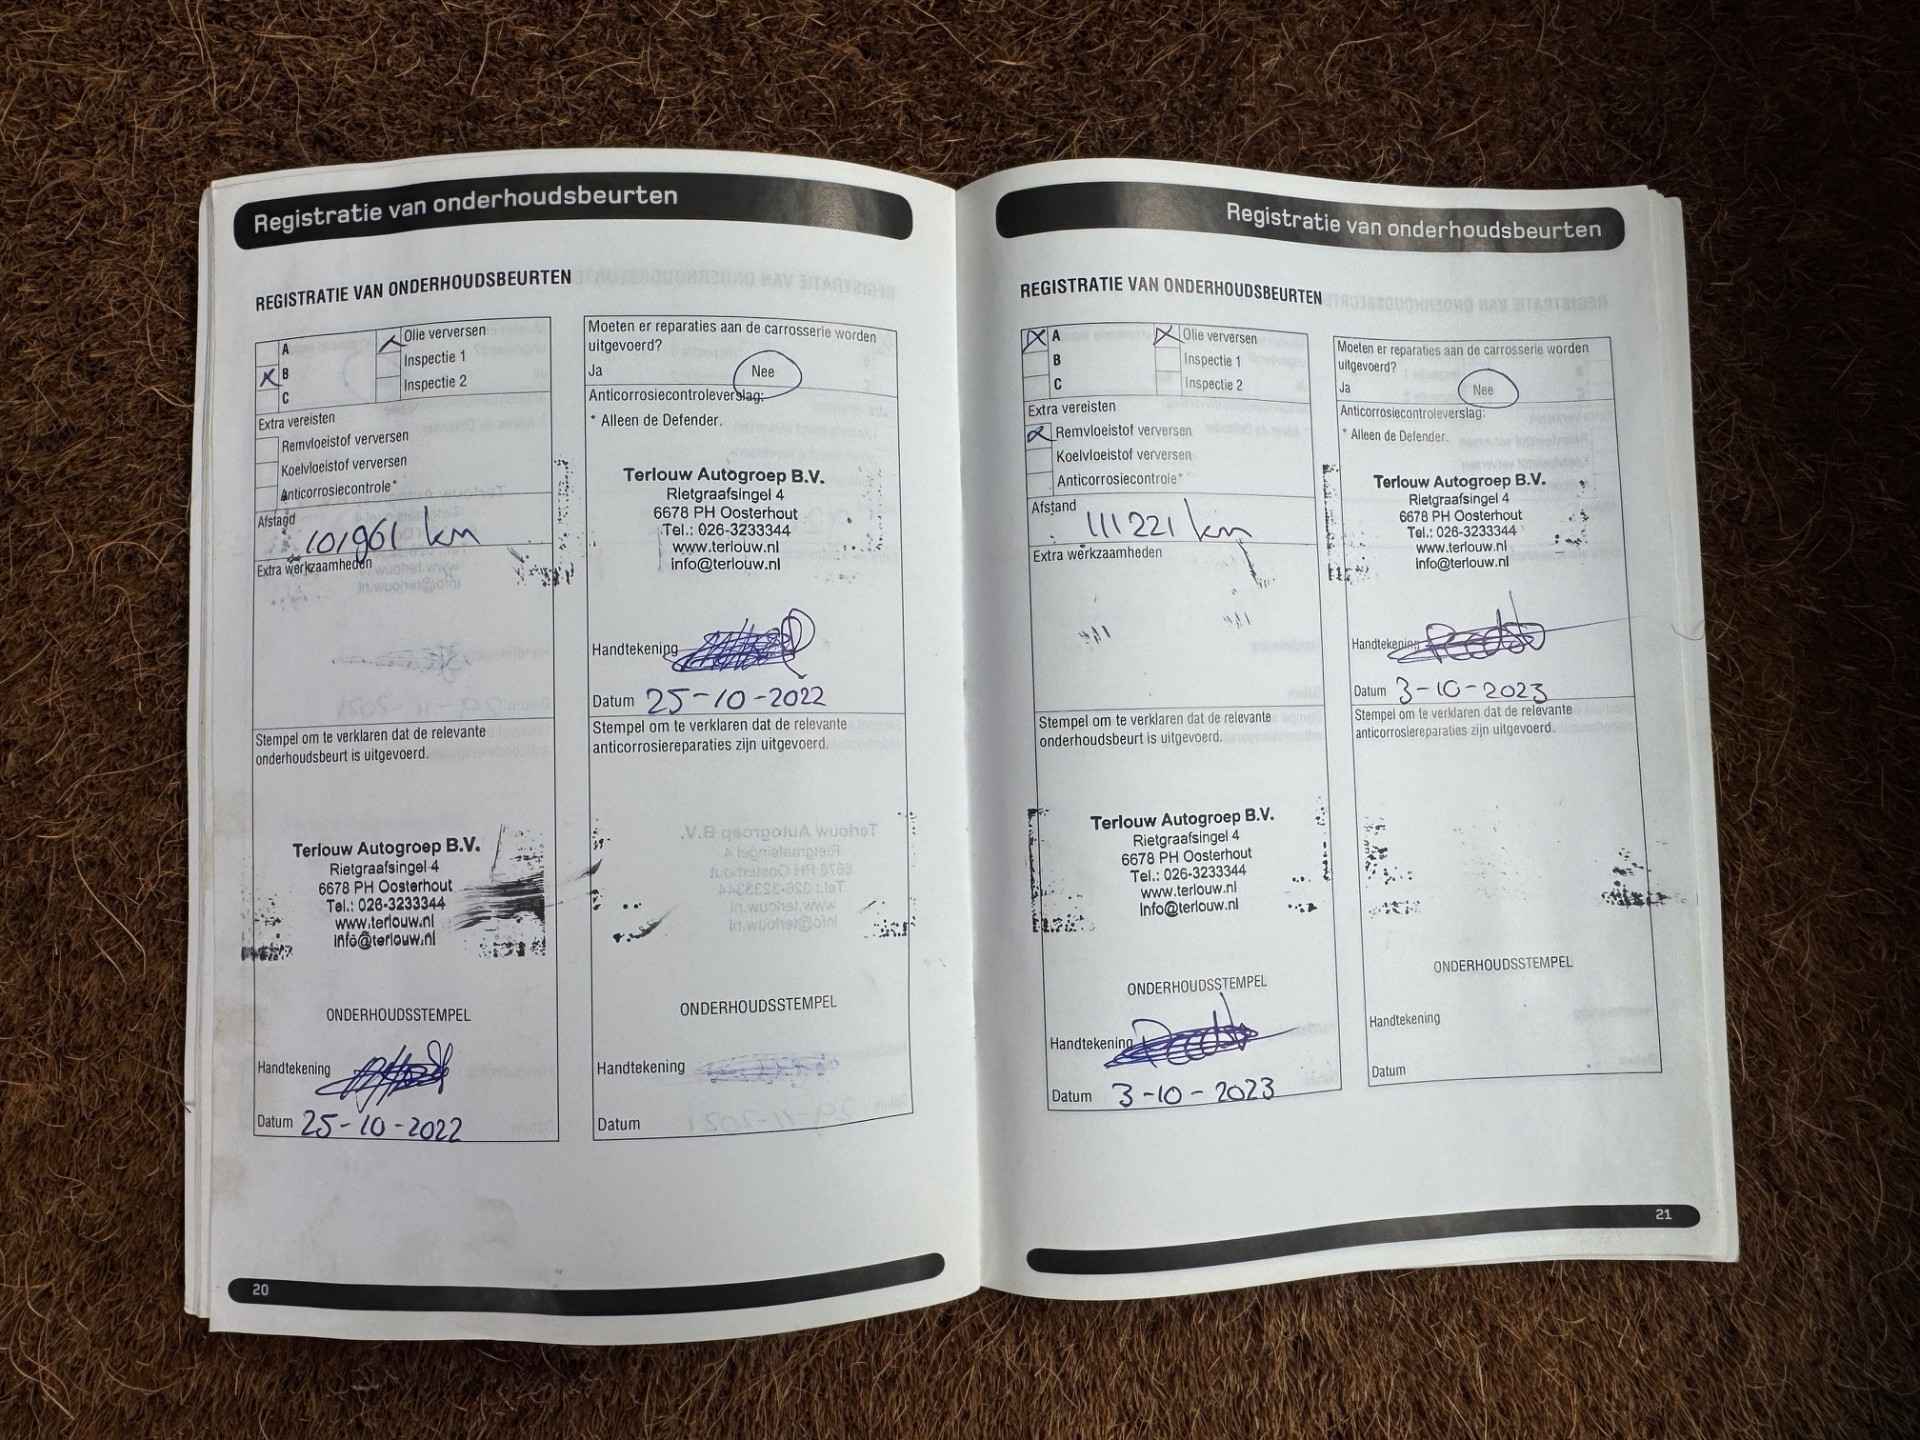 Registratie van onderhoudsbeurten
REGISTRATIE VAN ONDERHOUDSBEURTEN
A
B
C
Olie verversen
Inspectie 1
Inspectie 2
Extra vereisten
Remvloeistof verversen
Koelvloeistof verversen
Anticorrosiecontrole*
Afstand
101961 km
Extra werkzaamheden
Stempel om te verklaren dat de relevante
onderhoudsbeurt is uitgevoerd.
Terlouw Autogroep B.V.
Rietgraafsingel 4
6678 PH Oosterhout
Tel.: 026-3233344
www.terlouw.nl
info@terlouw.nl
ONDERHOUDSSTEMPEL
Handtekening
Datum 25-10-2022
Moeten er reparaties aan de carrosserie worden
uitgevoerd?
Ja Nee
Anticorrosiecontroleverslag:
* Alleen de Defender.
Terlouw Autogroep B.V.
Rietgraafsingel 4
6678 PH Oosterhout
Tel.: 026-3233344
www.terlouw.nl
info@terlouw.nl
Handtekening
Datum 25-10-2022
Stempel om te verklaren dat de relevante
anticorrosiereparaties zijn uitgevoerd.
ONDERHOUDSSTEMPEL
Handtekening
Datum
20
Registratie van onderhoudsbeurten
REGISTRATIE VAN ONDERHOUDSBEURTEN
A
B
C
Olie verversen
Inspectie 1
Inspectie 2
Extra vereisten
Remvloeistof verversen
Koelvloeistof verversen
Anticorrosiecontrole*
Afstand
111221 km
Extra werkzaamheden
Stempel om te verklaren dat de relevante
onderhoudsbeurt is uitgevoerd.
Terlouw Autogroep B.V.
Rietgraafsingel 4
6678 PH Oosterhout
Tel.: 026-3233344
www.terlouw.nl
info@terlouw.nl
ONDERHOUDSSTEMPEL
Handtekening
Datum 3-10-2023
Moeten er reparaties aan de carrosserie worden
uitgevoerd?
Ja Nee
Anticorrosiecontroleverslag:
* Alleen de Defender.
Terlouw Autogroep B.V.
Rietgraafsingel 4
6678 PH Oosterhout
Tel.: 026-3233344
www.terlouw.nl
info@terlouw.nl
Handtekening
Datum 3-10-2023
Stempel om te verklaren dat de relevante
anticorrosiereparaties zijn uitgevoerd.
ONDERHOUDSSTEMPEL
Handtekening
Datum
21